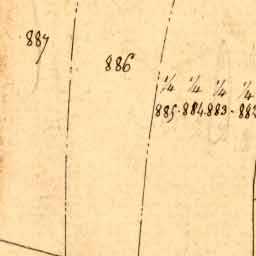 887
886
1/4 1/4 1/4 1/4
885. 884. 883. 882